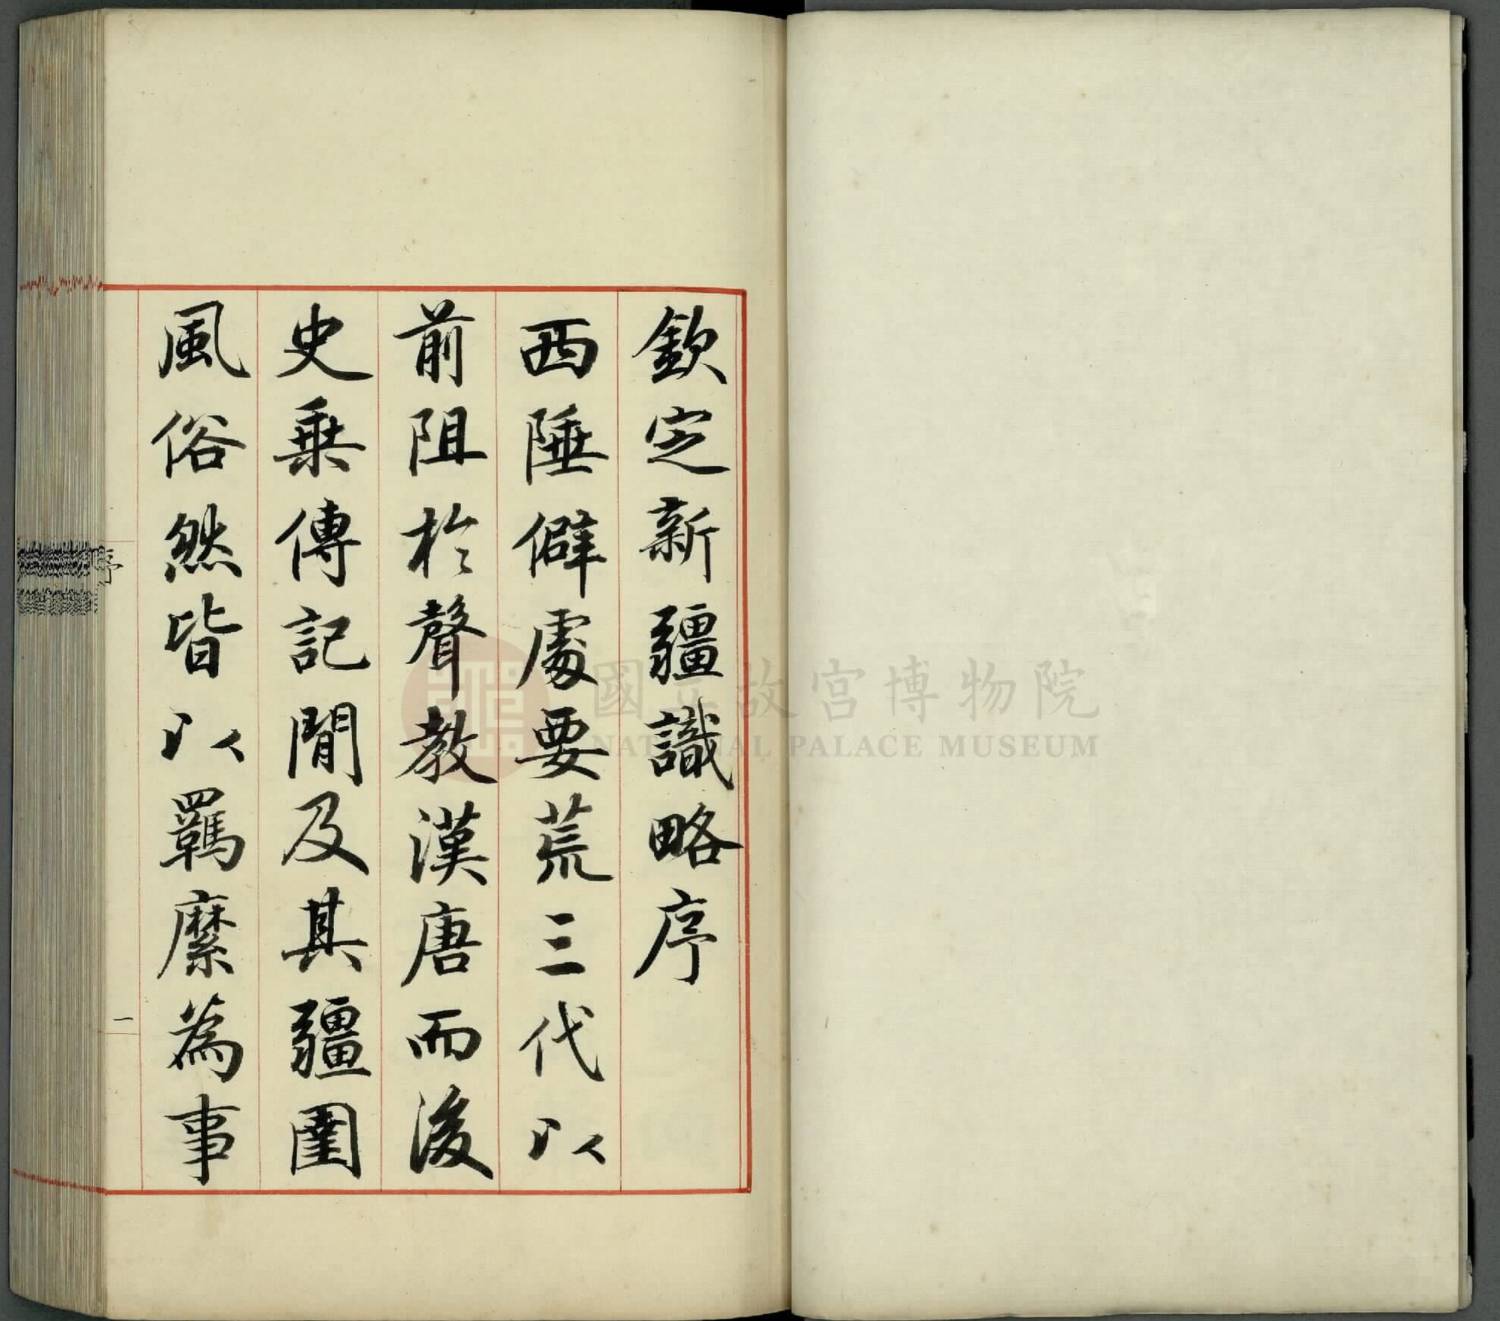 欽定新疆識略序
西陲僻處要荒三代以
前阻於聲教漢唐而後
史乗傳記閒及其疆圉
風俗然皆以羈縻為事
序
一
國立故宮博物院
NATIONAL PALACE MUSEUM